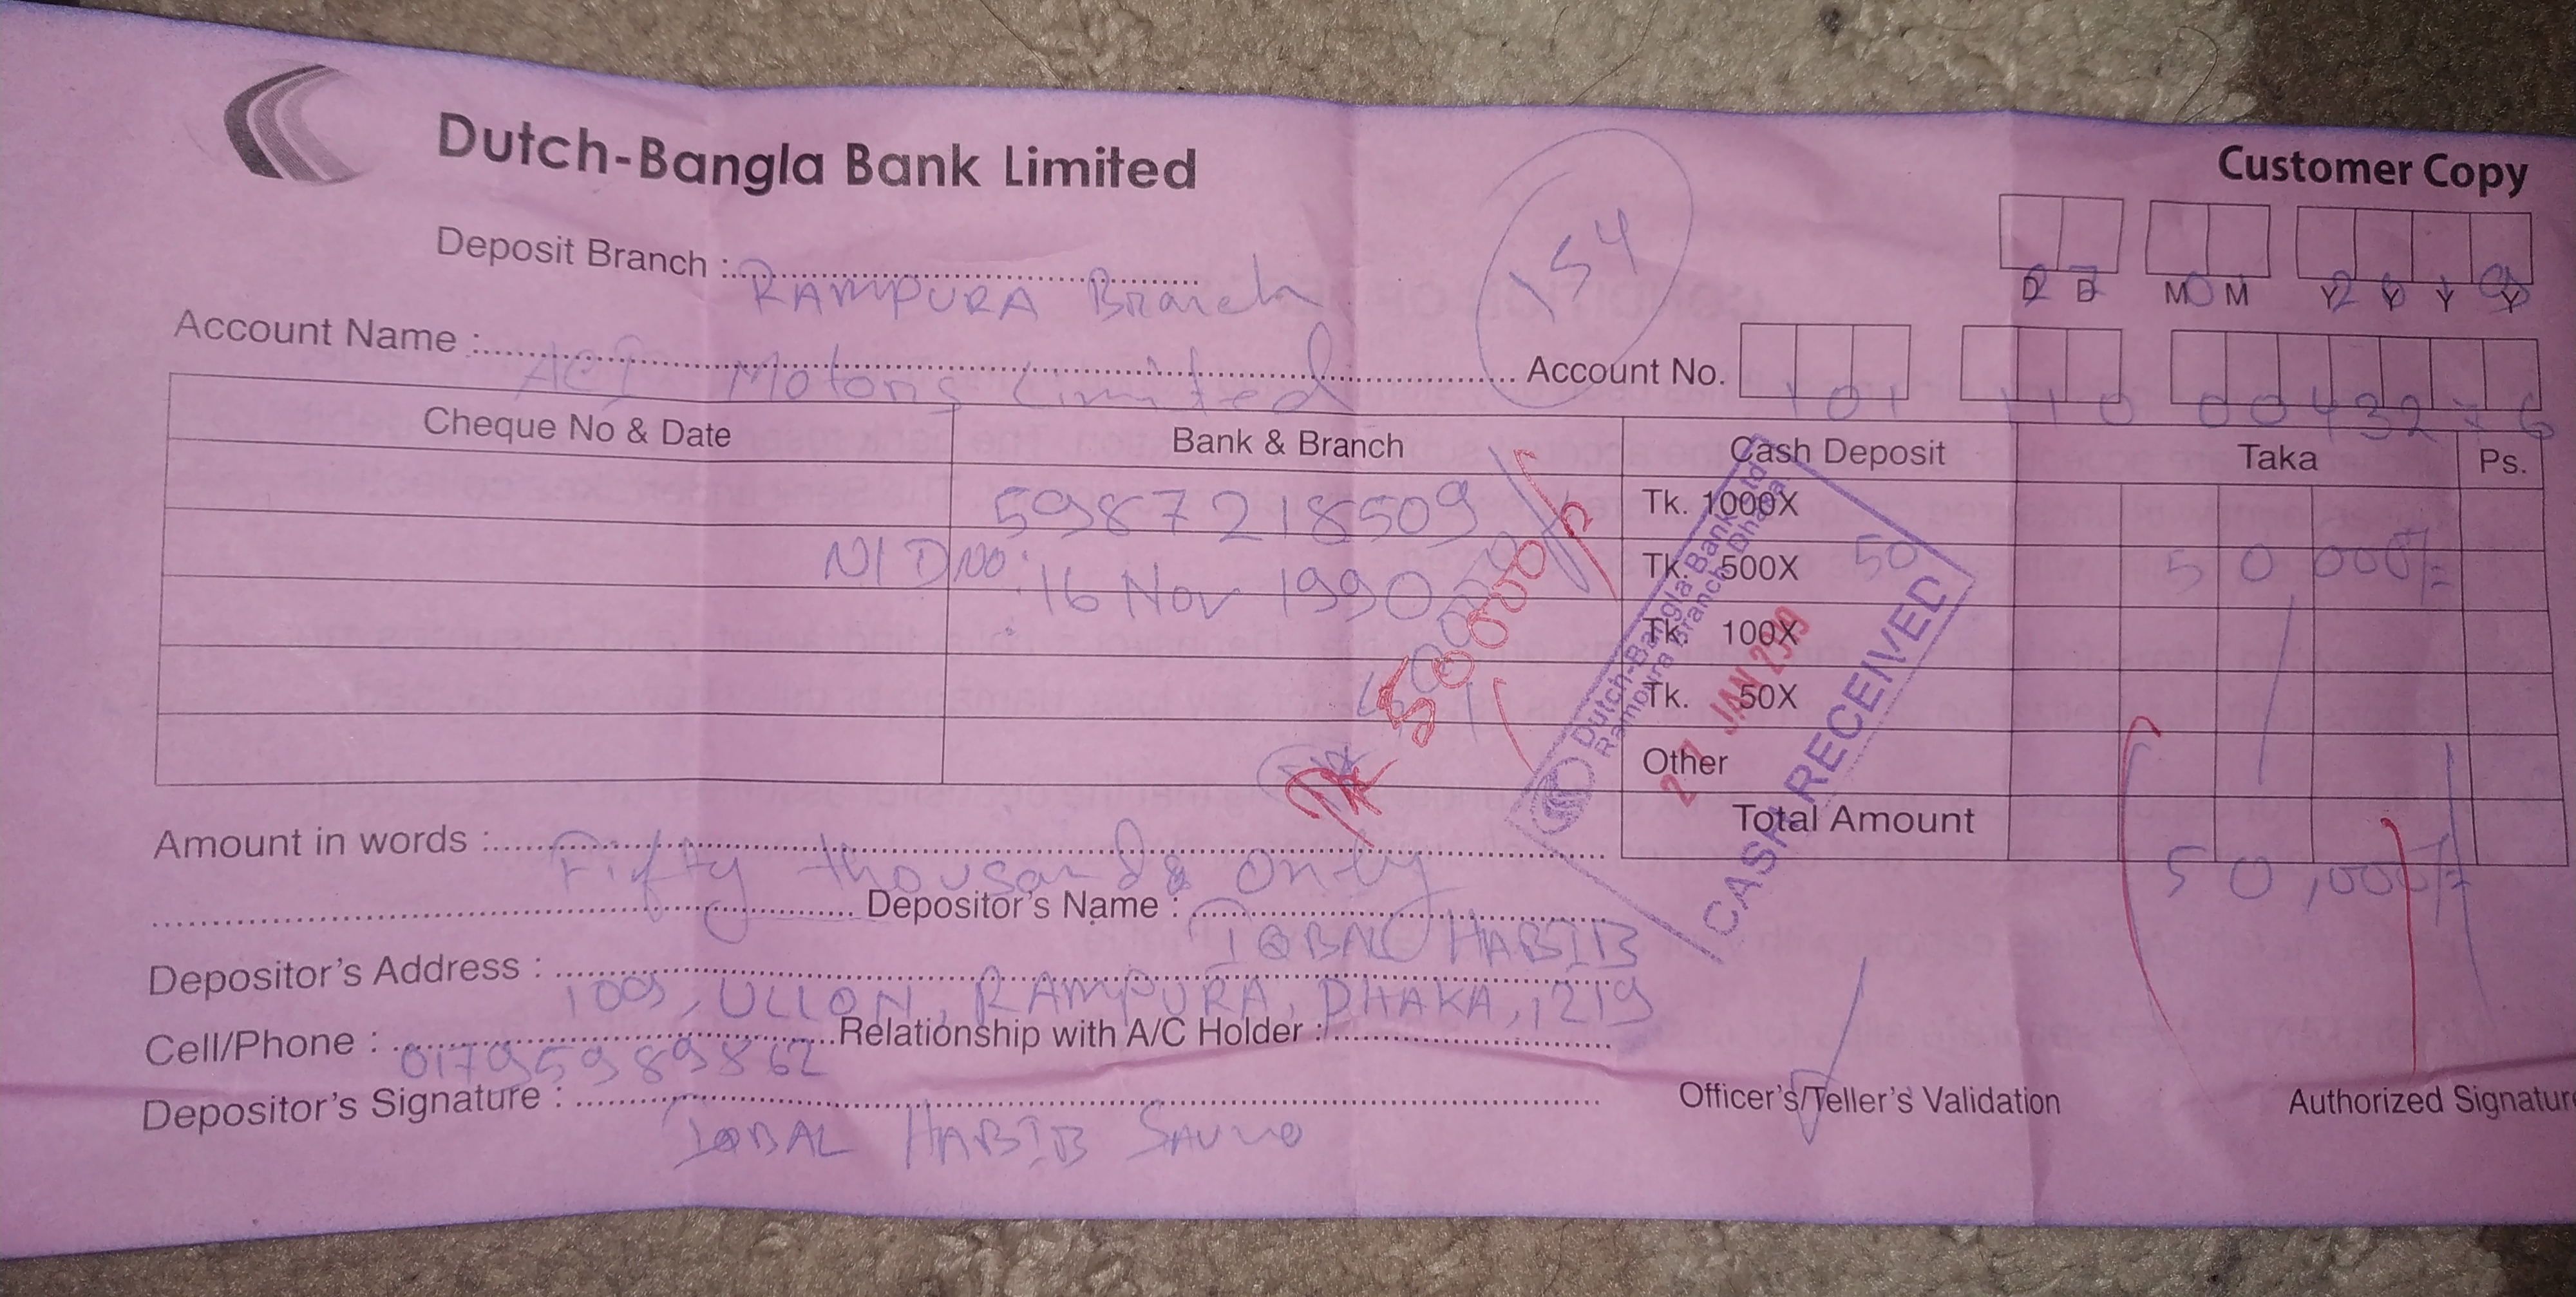 Dutch-Bangla Bank Limited
Customer Copy
Deposit Branch : RAMPURA Branch
154
D D M M Y Y Y Y
Account Name : ACI Motors Limited
Account No. 101 110 0043276
Cheque No & Date Bank & Branch Cash Deposit Taka Ps.
5987218509
Tk. 1000X 50 50 000/=
NID NO:
Tk. 500X
16 Nov 1990
Tk. 100X
Tk. 50X
Other
Tk 50000/=
Dutch-Bangla Bank Ltd.
Rampura Branch Dhaka
27 JAN 2019
CASH RECEIVED
Total Amount 50,000/=
Amount in words : Fifty thousands only
Depositor's Name : IQBAL HABIB
Depositor's Address : 1009, ULLON, RAMPURA, DHAKA, 1219
Cell/Phone : 01795989862 Relationship with A/C Holder :
Depositor's Signature : IQBAL HABIB
Officer's/Teller's Validation
Authorized Signature